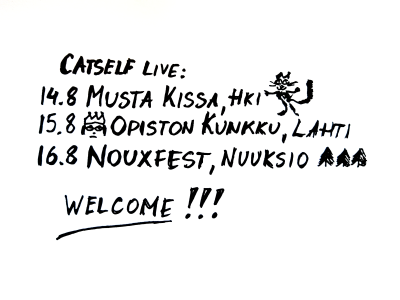 CATSELF LIVE:
14.8 MUSTA KISSA, HKI
15.8 OPISTON KUNKKU, LAHTI
16.8 NOUXFEST, NUUKSIO
WELCOME !!!